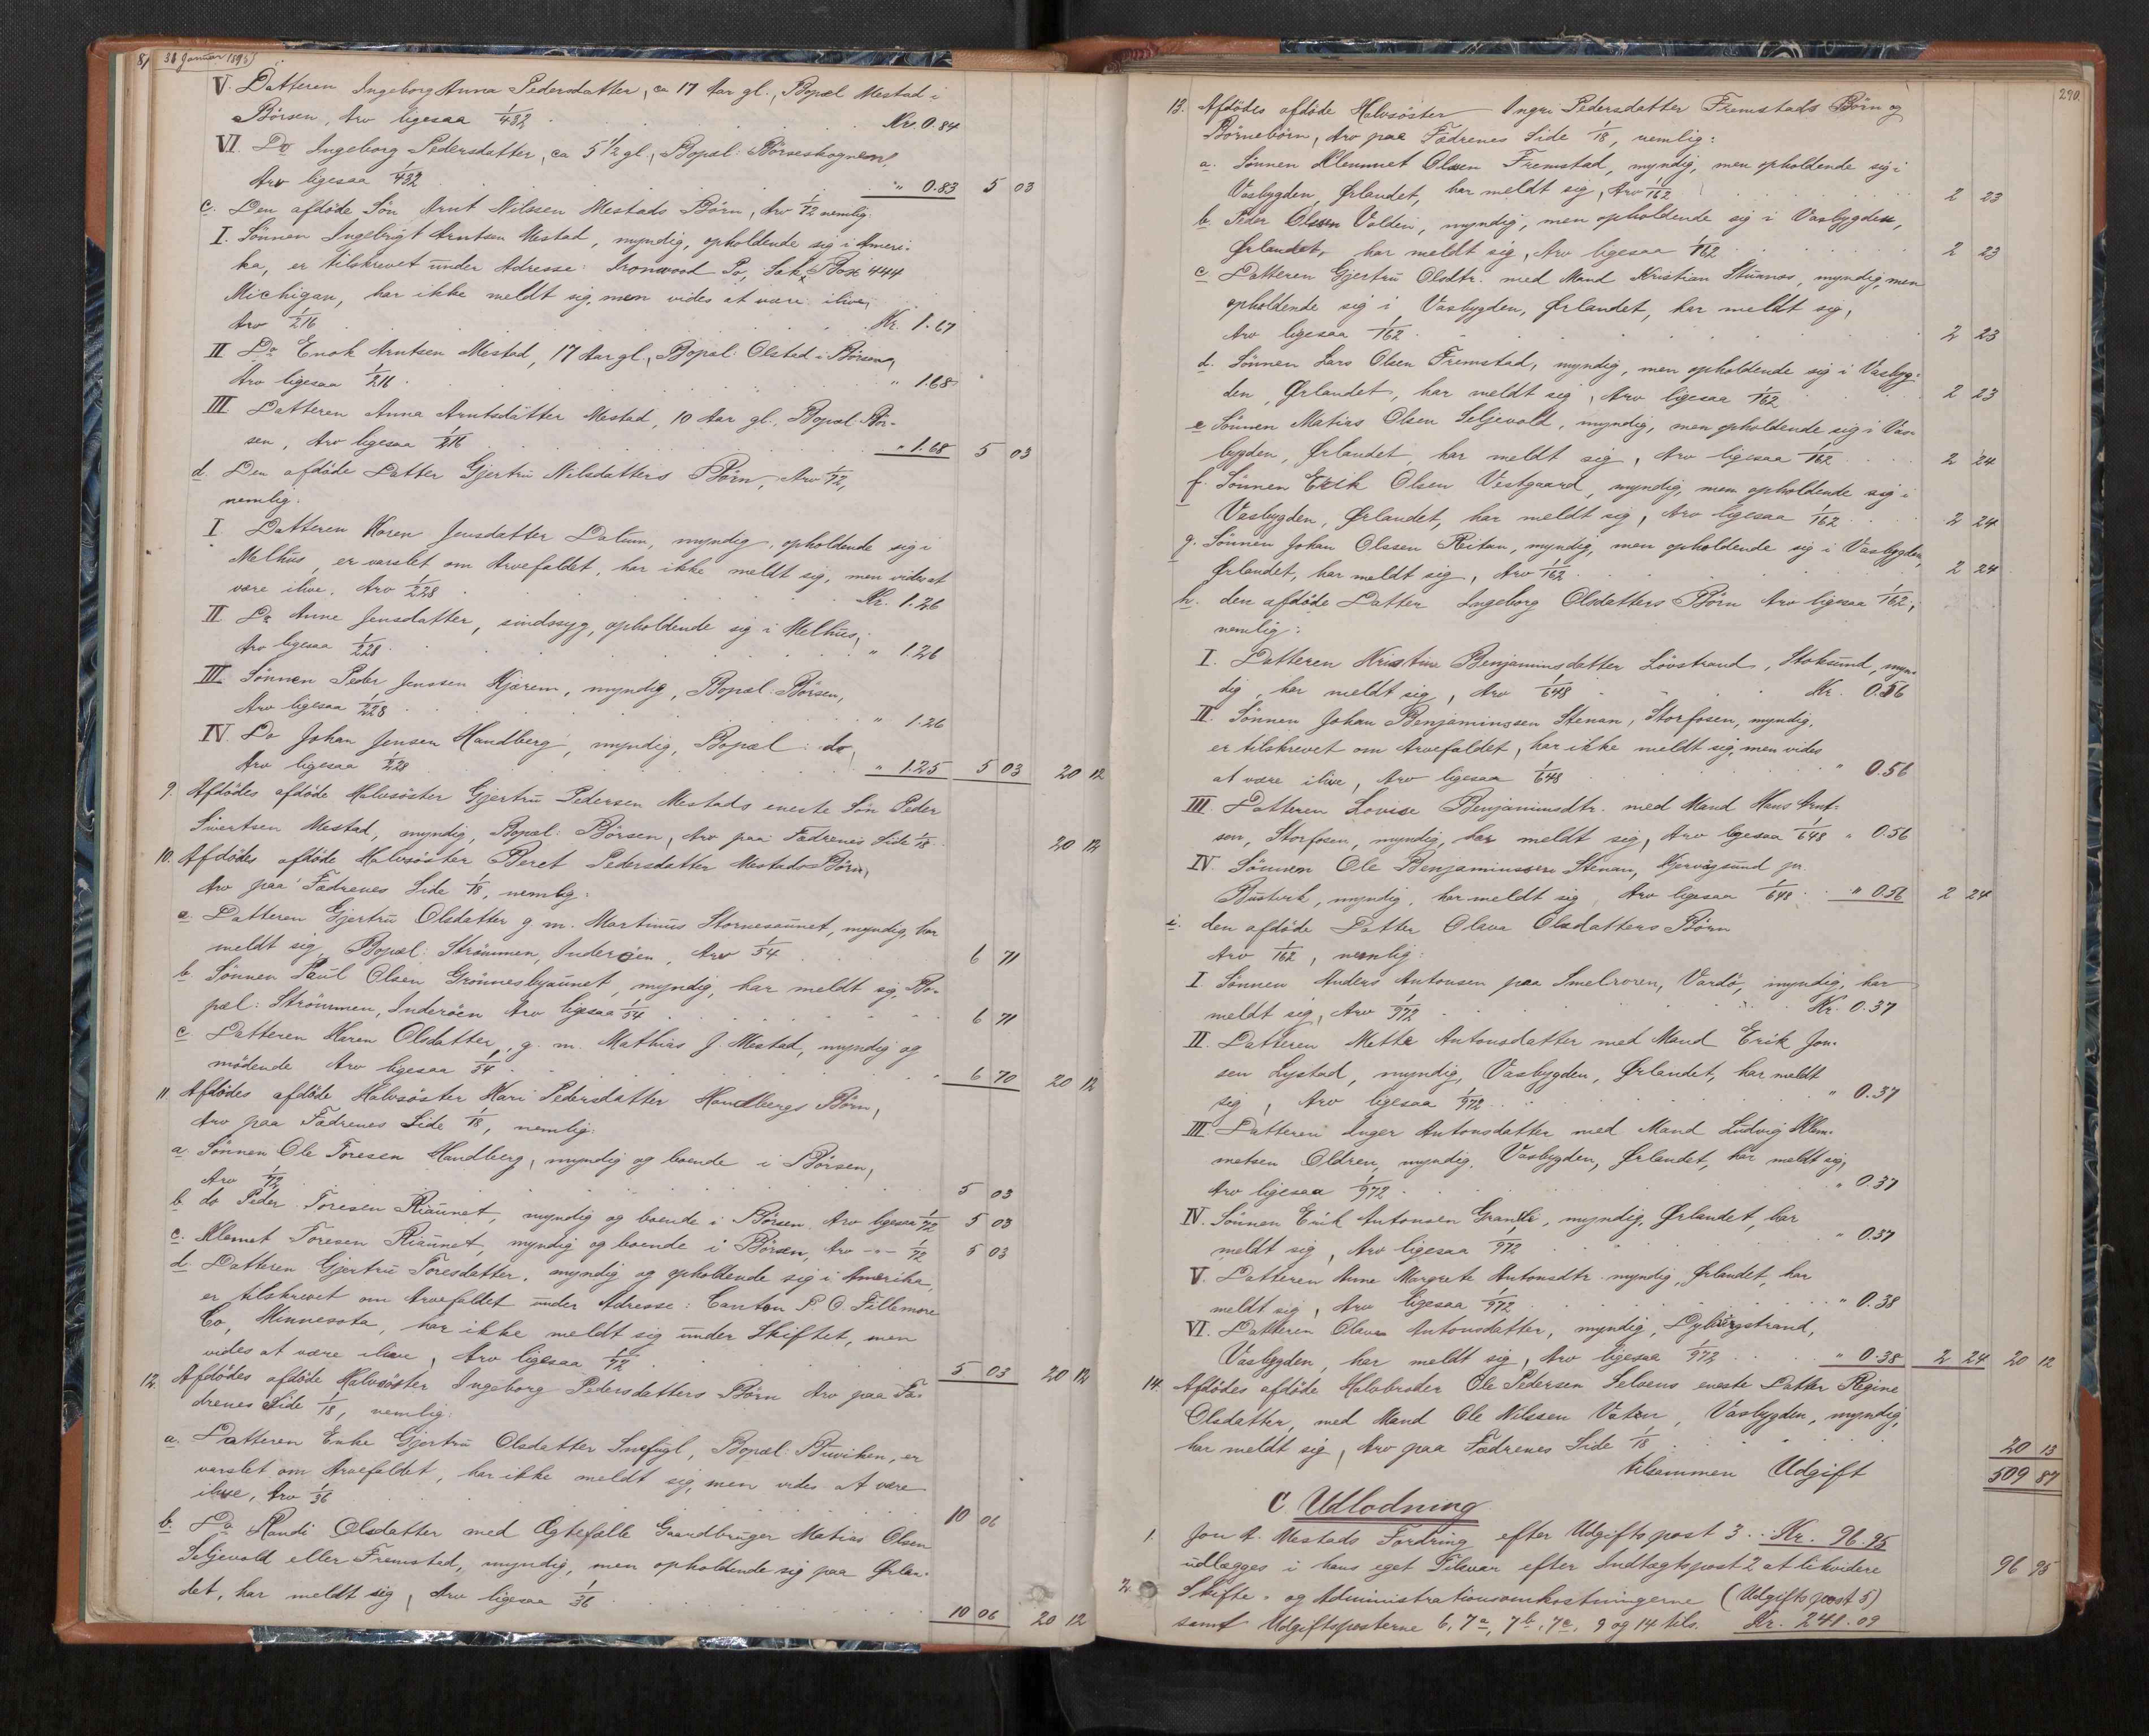 8/ 31 Januar 1896)
V. Datteren Ingeborg Anna Pedersdatter, ca 17 Aar gl., Bopæl Mestad i
Börsen, Arv ligesaa 1/432 Kr. 0.84
VI. Do Ingeborg Pedersdatter, ca 5 1/2 gl., Bopæl: Börseskognen,
Arv ligesaa 1/432 " 0.83 5 03
c. Den afdöde Sön Arnt Nilssen Mestads Börn, Arv 1/72 nemlig:
I. Sönnen Ingebrigt Arntsen Mestad, myndig, opholdende sig i Ameri-
ka, er tilskrevet under Adresse: Ironwood Po, Box 444
Michigan, har ikke meldt sig, men vides at være ilive,
Arv 1/216 Kr. 1.67
II Do Enok Arntsen Mestad, 17 Aar gl., Bopæl: Olstad i Börsen,
Arv ligesaa 1/216 " 1.68
III Datteren Anna Arntsdatter Mestad, 10 Aar gl., Bopæl: Bör-
sen, Arv ligesaa 1/216 " 1.68 5 03
d. Den afdöde Datter Gjertru Nilsdatters Börn, Arv 1/72,
nemlig:
I. Datteren Karen Jensdatter Dalum, myndig, opholdende sig i
Melhus, er varslet om Arvefaldet, har ikke meldt sig, men vides at
være ilive, Arv 1/228 Kr. 1.26
II. Do Anne Jensdatter, sindssyg, opholdende sig i Melhus,
Arv ligesaa 1/228 " 1.26
III. Sönnen Peder Jenssen Kjærem, myndig, Bopæl: Börsen,
Arv ligesaa 1/228 " 1.26
IV. Do Johan Jensen Handberg, myndig, Bopæl: do,
Arv ligesaa 1/228 " 1.25 5 03 20 12
9. Afdödes afdöde Halvsöster Gjertru Pedersen Mestads eneste Sön Peder
Sivertsen Mestad, myndig, Bopæl: Börsen, Arv paa Fædrenes Side 1/18 20 12
10. Afdödes afdöde Halvsöster Beret Pedersdatter Mestads Börn,
Arv paa Fædrenes Side 1/18, nemlig:
a. Datteren Gjertru Olsdatter g. m. Martinus Stornesaunet, myndig, har
meldt sig, Bopæl: Strömmen, Inderöen, Arv 1/54 6 71
b. Sönnen Paul Olsen Grönnesbyaunet, myndig, har meldt sig, Bo-
pæl: Strömmen, Inderöen Arv ligesaa 1/54 6 71
c. Datteren Maren Olsdatter, g. m. Mathias J. Mestad, myndig og
mödende Arv ligesaa 1/54 6 70 20 12
11. Afdödes afdöde Halvsöster Mari Pedersdatter Handbergs Börn,
Arv paa Fædrenes Side 1/18, nemlig:
a Sönnen Ole Toresen Handberg, myndig og boende i Börsen,
Arv 1/72 5 03
b. do Peder Toresen Riaunet, myndig og boende i Börsen, Arv ligesaa 1/72 5 03
c. Klemet Toresen Riaunet, myndig og boende i Börsen, Arv -"- 1/72 5 03
d. Datteren Gjertru Toresdatter, myndig og opholdende sig i Amerika,
er tilskrevet om Arvefaldet under Adresse: Canton P. O. Fillemore
Co, Minnesota, har ikke meldt sig under Skiftet, men
vides at være ilive, Arv ligesaa 1/72 5 03 20 12
12. Afdödes afdöde Halvsöster Ingeborg Pedersdatters Börn Arv paa Fæ-
drenes Side 1/18, nemlig:
a. Datteren Enke Gjertru Olsdatter Snefugl, Bopæl: Buviken, er
varslet om Arvefaldet, har ikke meldt sig, men vides at være
ilive, Arv 1/36 10 06
b. Do Randi Olsdatter med Ægtefælle Gaardbruger Matias Olsen
Seljevold eller Fremstad, myndig, men opholdende sig paa Ørlan-
det, har meldt sig, Arv ligesaa 1/36 10 06 20 12
290.
13. Afdödes afdöde Halvsöster Ingri Pedersdatter Fremstads Börn og
Börnebörn, Arv paa Fædrenes Side 1/18, nemlig:
a. Sönnen Klemmet Olsen Fremstad, myndig, men opholdende sig i
Vasbygden, Ørlandet, har meldt sig, Arv 1/162 2 23
b. Peder Olsen Volden, myndig, men opholdende sig i Vasbygden,
Ørlandet, har meldt sig, Arv ligesaa 1/162 2 23
c Datteren Gjertru Olsdtr. med Mand Kristian Stuanes, myndig, men
opholdende sig i Vasbygden, Ørlandet, har meldt sig,
Arv ligesaa 1/162 2 23
d. Sönnen Lars Olsen Fremstad, myndig, men opholdende sig i Vasbyg-
den, Ørlandet, har meldt sig, Arv ligesaa 1/162 2 23
e Sönnen Matias Olsen Seljevold, myndig, men opholdende sig i Vas-
bygden, Ørlandet, har meldt sig, Arv ligesaa 1/162 2 24
f. Sönnen Erik Olsen Vestgaard, myndig, men opholdende sig i
Vasbygden, Ørlandet, har meldt sig, Arv ligesaa 1/162 2 24
g. Sönnen Johan Olssen Reitan, myndig, men opholdende sig i Vasbygden,
Ørlandet, har meldt sig, Arv 1/162 2 24
h. den afdöde Datter Ingeborg Olsdatters Börn Arv ligesaa 1/162,
nemlig:
I. Datteren Kristine Benjaminsdatter Lövstrand, Stoksund, myn-
dig, har meldt sig, Arv 1/648 Kr. 0.56
II. Sönnen Johan Benjaminssen Stenan, Storfosen, myndig,
er tilskrevet om Arvefaldet, har ikke meldt sig, men vides
at være ilive, Arv ligesaa 1/648 " 0.56
III. Datteren Lovise Benjaminsdtr. med Mand Hans Arnt-
sen, Storfosen, myndig, har meldt sig, Arv ligesaa 1/648 " 0.56
IV. Sönnen Ole Benjaminssen Stenan, Kjervaagsund pr.
myndig, har meldt sig, Arv ligesaa 1/648 " 0.56 2 24
i. den afdöde Datter Olava Olsdatters Börn
Arv 1/162, nemlig:
I Sönnen Anders Antonsen paa Smelroren, Vardö, myndig, har
meldt sig, Arv 1/972 Kr. 0.37
II. Datteren Mette Antonsdatter med Mand Erik Jon-
sen Lystad, myndig, Vasbygden, Ørlandet, har meldt
sig, Arv ligesaa 1/972 " 0.37
III. Datteren Inger Antonsdatter med Mand Ludvig Klem-
metsen Oldren, myndig, Vasbygden, Ørlandet, har meldt sig,
Arv ligesaa 1/972 " 0.37
IV. Sönnen Erik Antonsen Grande, myndig, Ørlandet, har
meldt sig, Arv ligesaa 1/972 " 0.37
V. Datteren Anne Margrete Antonsdtr. myndig, Ørlandet, har
meldt sig, Arv ligesaa 1/972 " 0.38
VI. Datteren Olava Antonsdatter, myndig,
Vasbygden, har meldt sig, Arv ligesaa 1/972 " 0.38 2 24 20 12
14. Afdödes afdöde Halvbroder Ole Pedersen Selvens eneste Datter Regine
Olsdatter, med Mand Ole Nilssen Vatn, Vasbygden, myndig,
har meldt sig, Arv paa Fædrenes Side 1/18 20 13
tilsammen Udgift 509 87
C Udlodning
1. Jon A. Mestads Fordring efter Udgiftspost 3 .. Kr. 96.95
udlægges i hans eget Tilsvar efter Indtægtspost 2 at likvidere 96 95
2. Skifte- og Administrationsomkostningerne (Udgiftspost 5)
samt Udgiftsposterne 6, 7a, 7b, 7c, 9 og 14 tils. Kr. 241.09